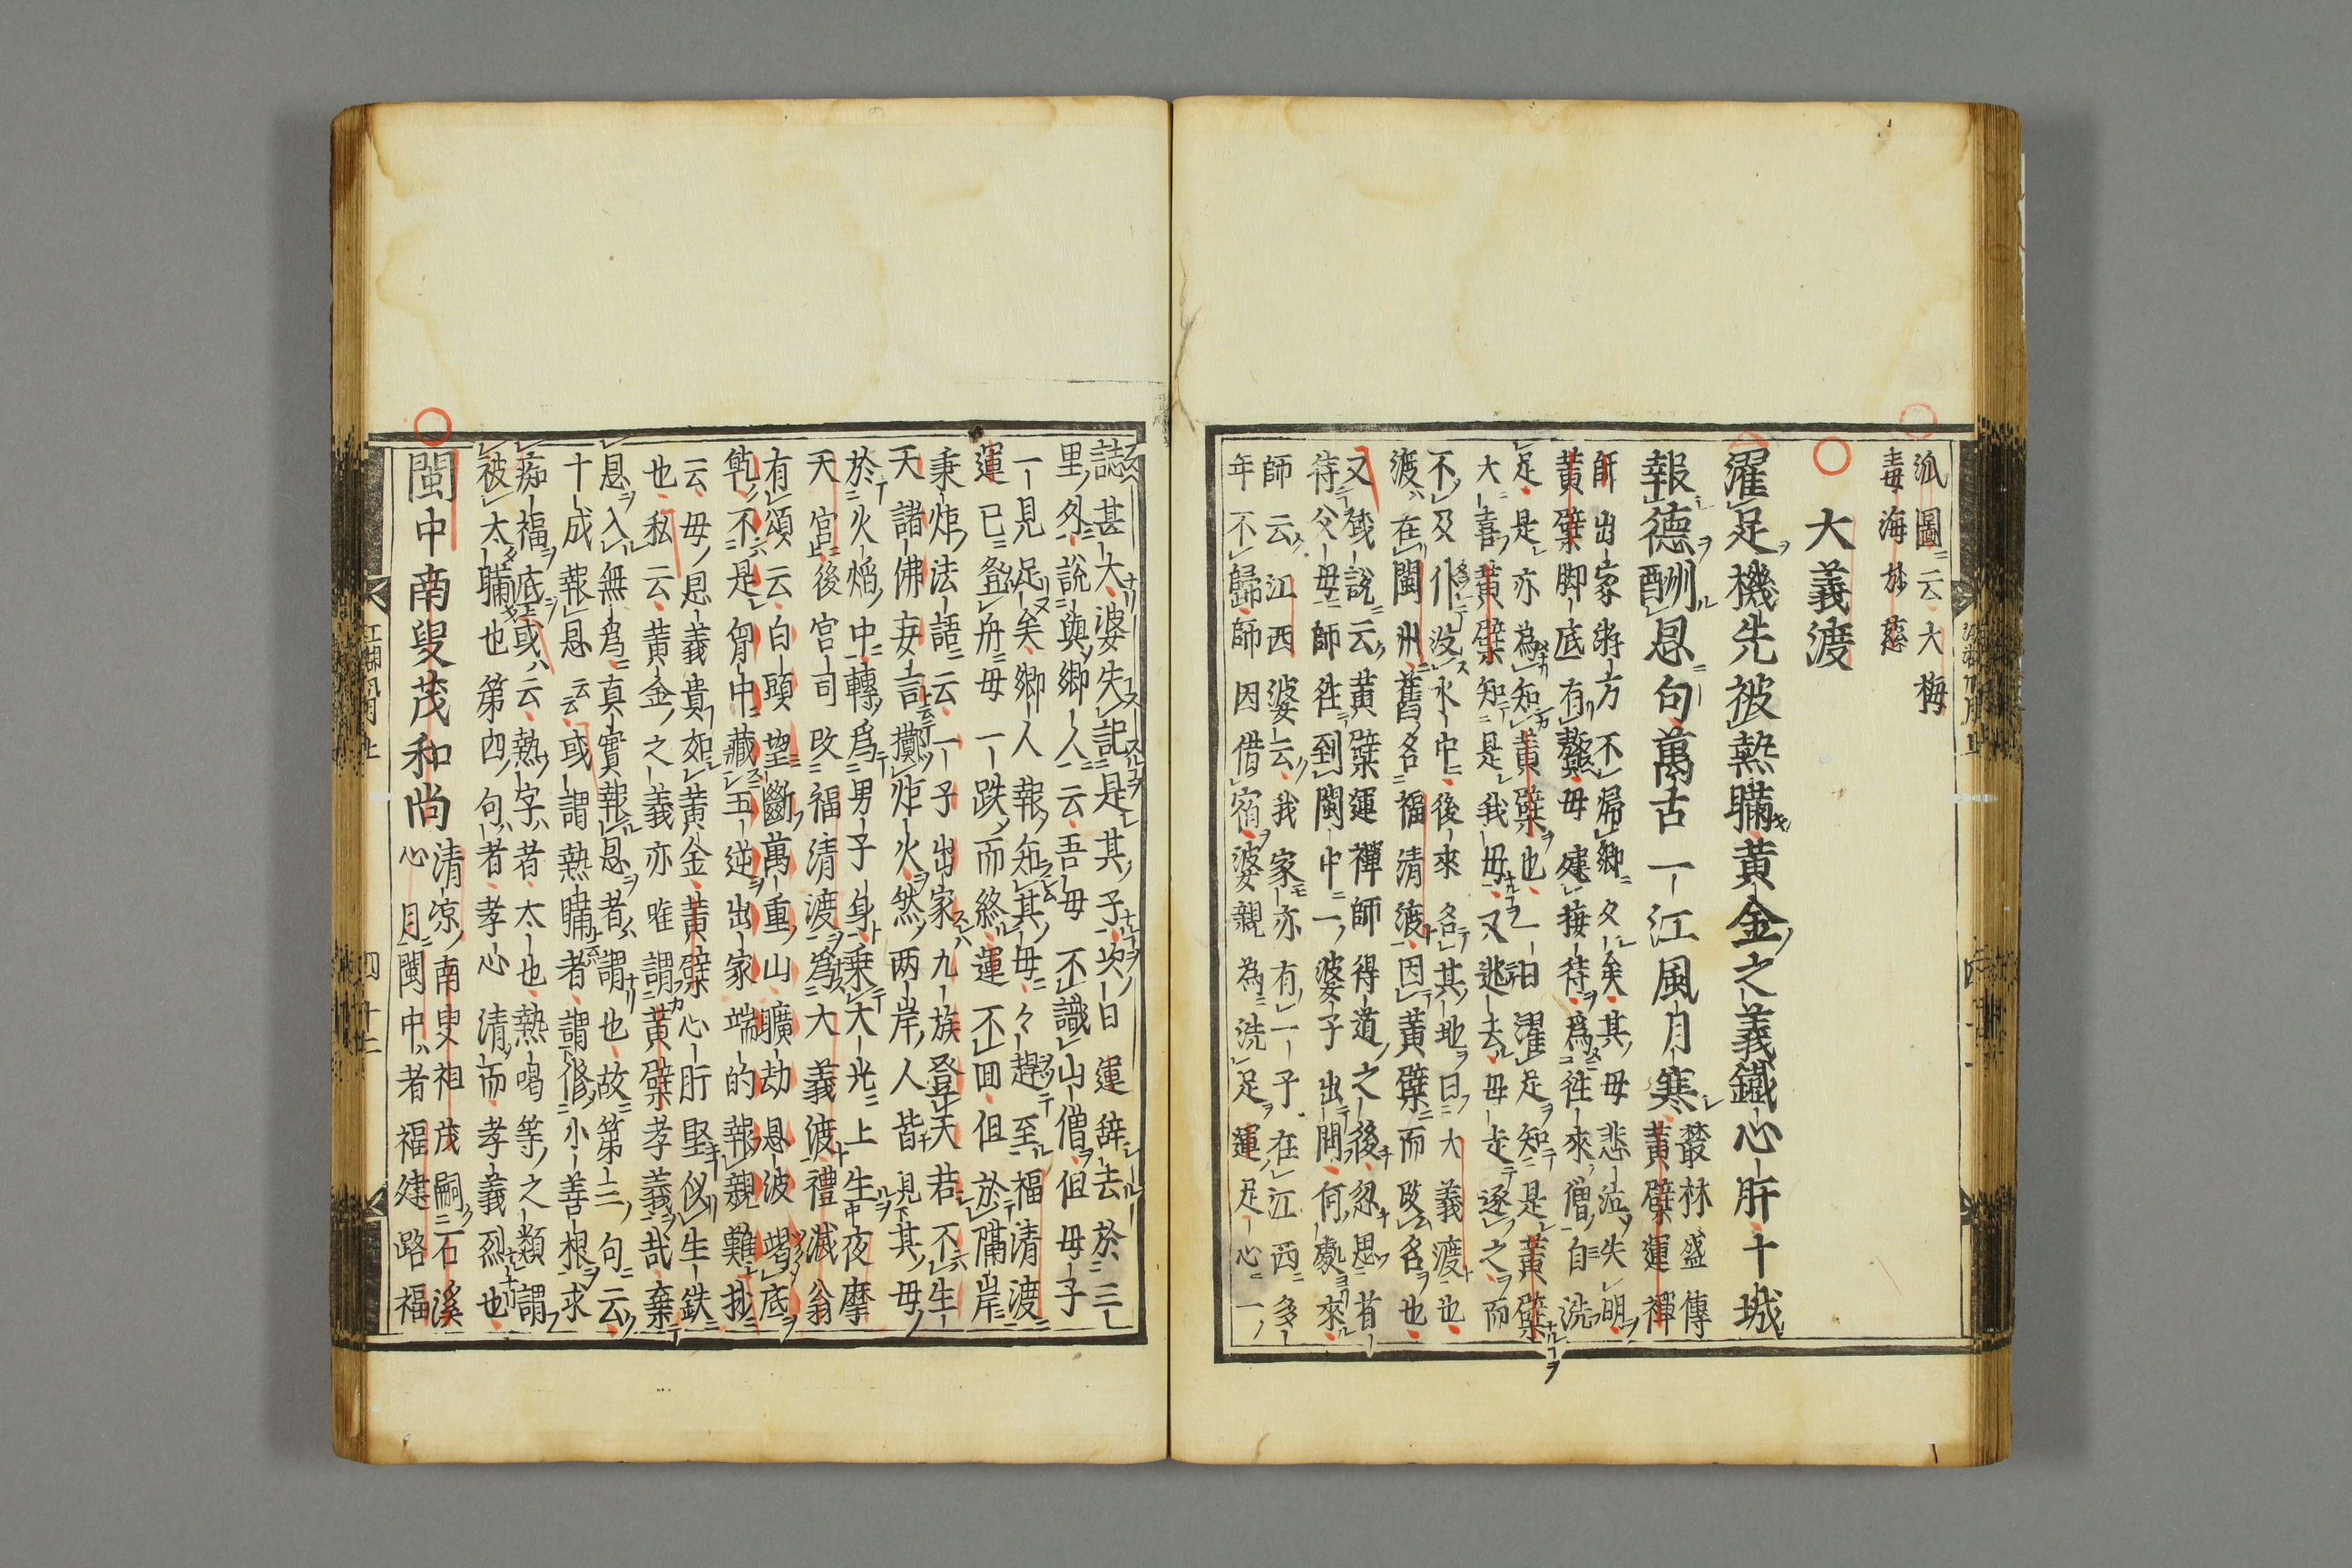 派圖云大梅
毒海於慈
大義渡
濯足機先被熱瞞黃金之義鐵心肝十城
報德酬恩句萬古一江風月寒
叢林盛傳
黃檗運禪
師出家游方不歸鄉久矣其母悲泣失明
黃檗脚底有贅母建接待爲往來僧自洗
足是亦為知黃檗也一日濯足知是黃檗
大喜黃檗知是我母又逃去母走逐之而
不及仆沒水中後來名其地曰大義渡也
渡在閩州舊名福清渡因黃檗而改名也
又儀說云黃檗運禪師得道之後忽思省
待父母師往到閩中一婆子出問何處來
師云江西婆云我家亦有一子在江西多
年不歸師因借宿婆親為洗足運足心一
誌甚大婆失記是其子次日運辭去於三
里外說與鄉人云吾母不識山僧但母子
一見足矣鄉人報知其母々趕至福清渡
運已登舟母一跌而終運不回但於隔岸
秉炬法語云一子出家九族登天若不生
天諸佛妄言擲炬火然兩岸人皆見其母
於火焰中轉爲男子身乘大光上生夜摩
天宮後官司改福清渡爲大義渡禮滅翁
有頌云白頭望斷萬重山曠劫恩波竭底
乾不是胷中藏五逆出家端的報親難抄
云母恩義貴如黃金黃檗心肝堅似生鉄
也私云黃金之義亦唯謂黃檗孝義哉棄
恩入無為真實報恩者謂也故第二句云
十成報恩云云或謂熱瞞者謂修小善根求
痴福底或云熱字者太也熱喝等之類謂
被太瞞也第四句者孝心清而孝義烈也
閩中南叟茂和尚
清凉南叟祖茂嗣石溪
心月閩中者福建路福